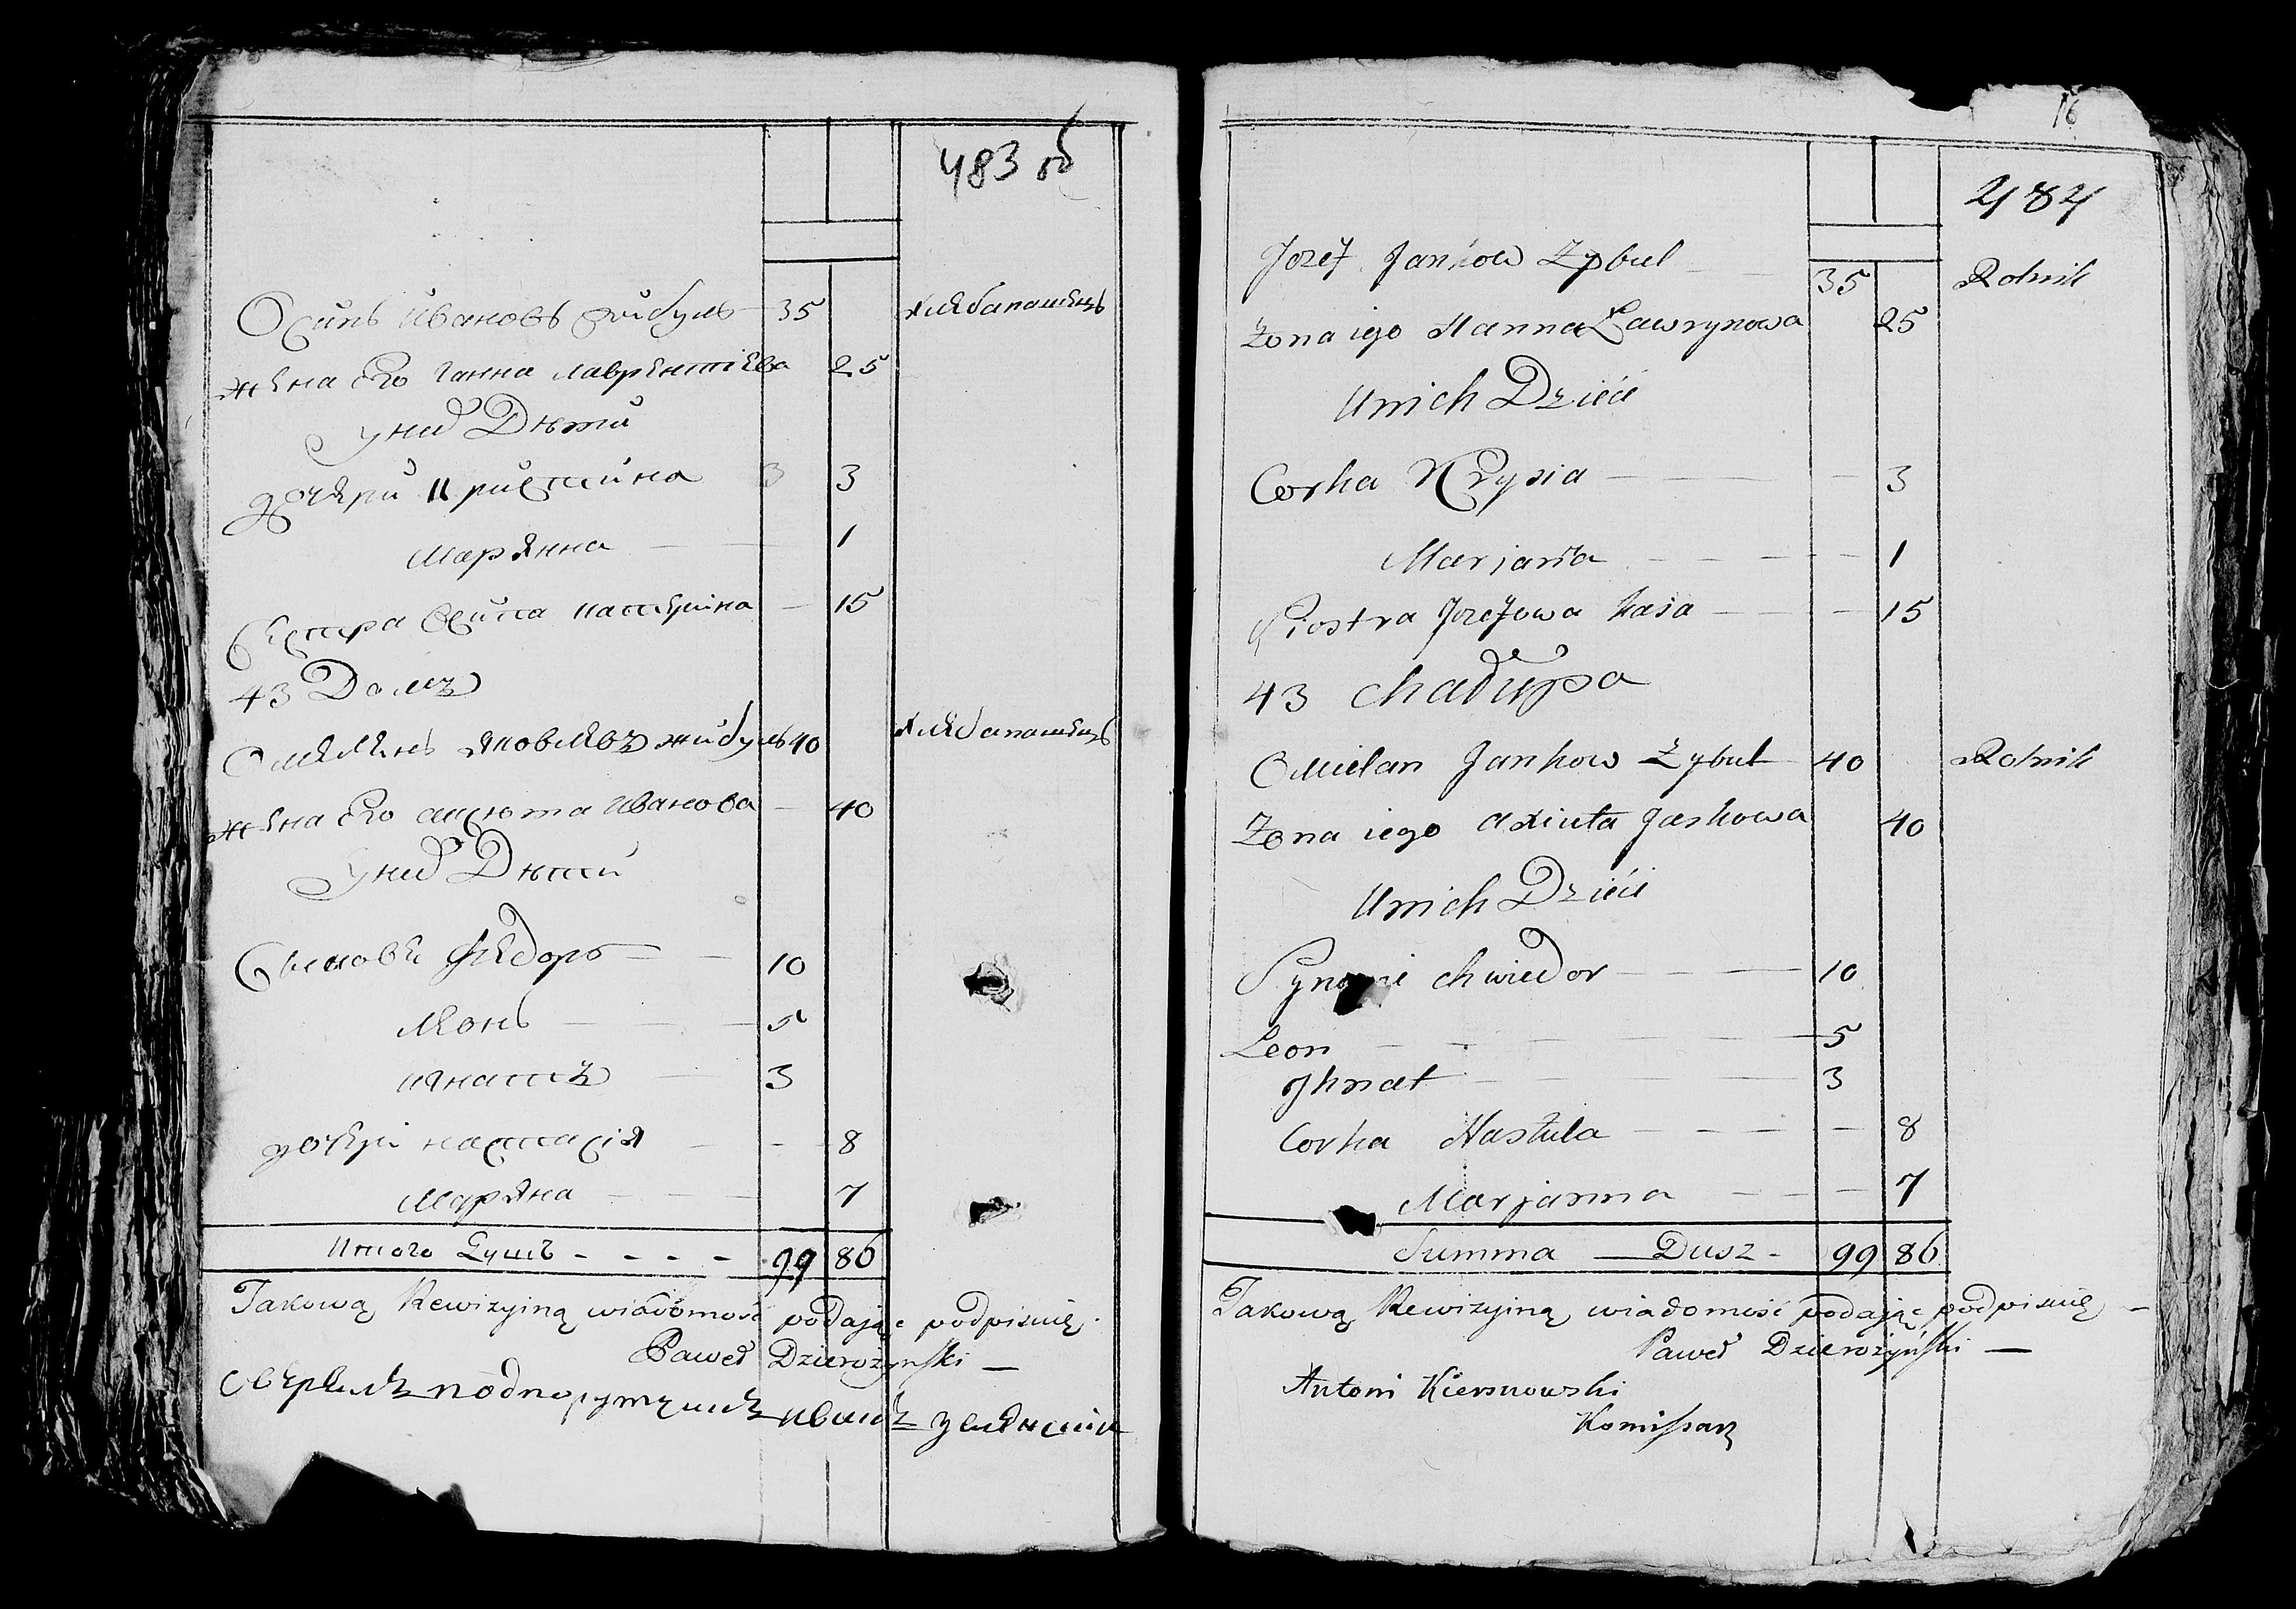 483 об
Осипъ Ивановъ жибуль 35 хлебапашецъ
жена Его Ганна лаврентіева 25
у них Дѣти
дочери Кристина 3 3
Марянна 1
Сестра Осипа Катерина 15
43 Домъ
Омелянъ яковлевъ жибуль 40 хлебапашецъ
жена Его аксюта Иванова 40
у них Дѣти
Сыновя Федоръ 10
Леонъ 5
Игнатъ 3
дочери настасія 8
Маряна 7
Итого Душъ 99 86
Takową Rewizyiną wiadomość podając podpisuię.
Paweł Dzierożynski
Сверялъ подпорутчикъ Иванъ
16
484
Jozef Jankow Zybul 35 Rolnik
Żona iego Hanna Ławrynowa 25
U nich Dzieci
Corka Krysia 3
Marjanna 1
Siostra Jozefowa Kasia 15
43 Chałupa
Omielan Jankow Zybul 40 Rolnik
Zona iego Axiuta Jaskowa 40
U nich Dzieci
Synowie Chwiedor 10
Leon 5
Jhnat 3
Corka Nastula 8
Marjanna 7
Summa Dusz 99 86
Takową Rewizyiną wiadomość podając podpisuię
Paweł Dzierożyński
Antoni Kiersnowski
Komissarz